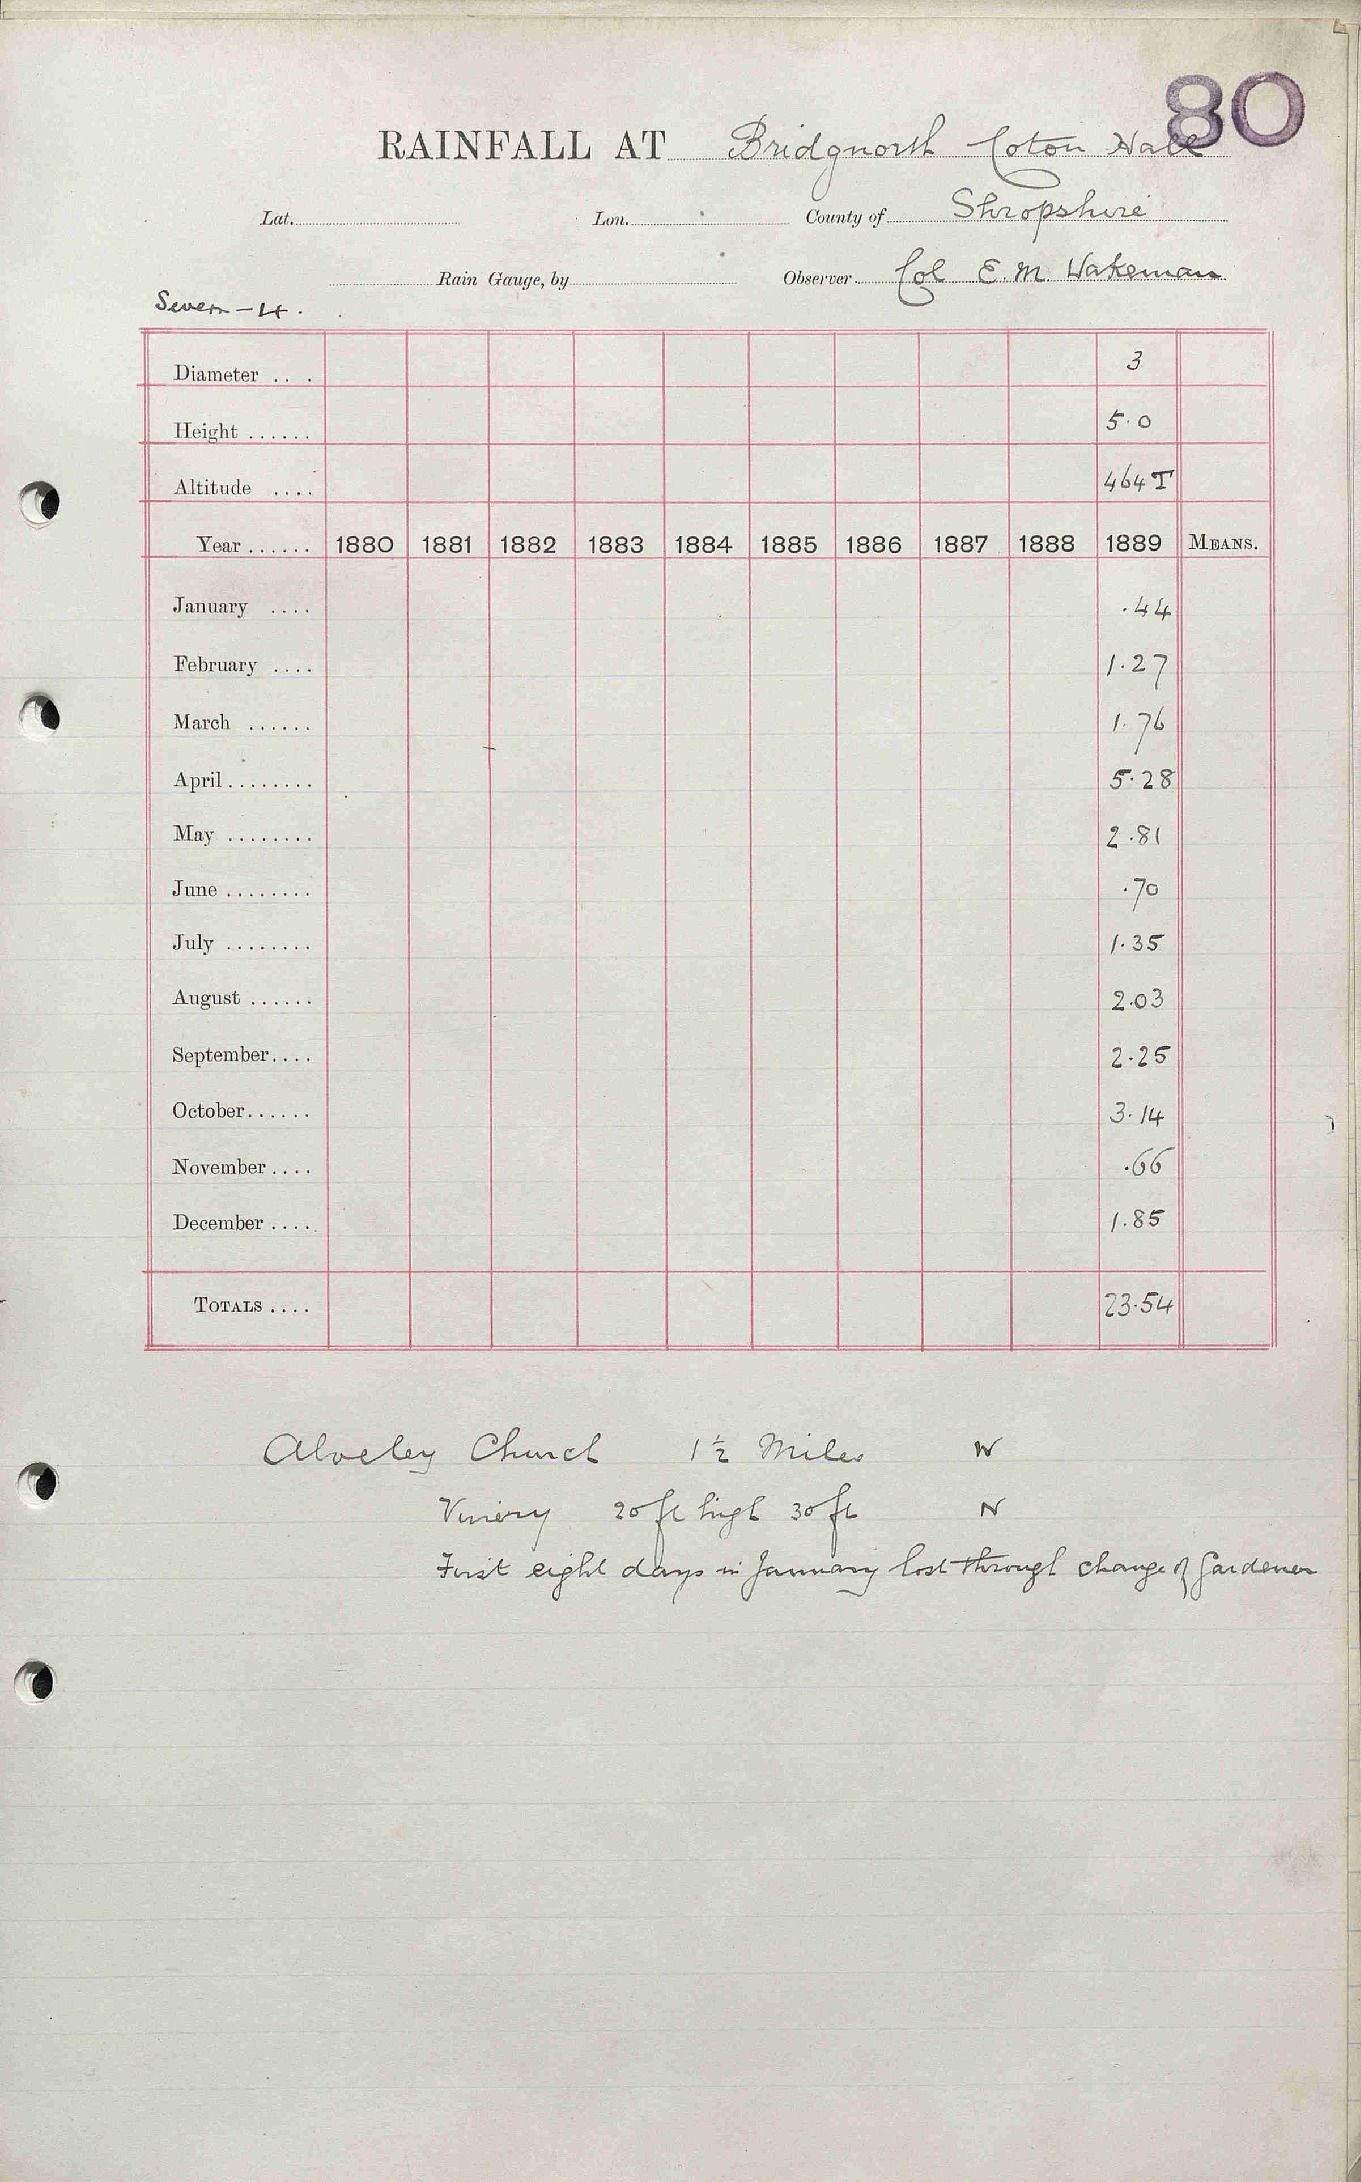 80
RAINFALL AT Bridgnorth Coton Hall
Lat. Lon. County of Shropshire
Rain Gauge, by Observer Col E. M Wakeman
Severn - 4.
Diameter .... 3
Height ...... 5.0
Altitude .... 464 T
Year ...... 1880 1881 1882 1883 1884 1885 1886 1887 1888 1889 MEANS.
January .... .44
February .... 1.27
March ...... 1.76
April ........ 5.28
May ........ 2.81
June ........ .70
July ........ 1.35
August ...... 2.03
September.... 2.25
October...... 3.14
November .... .66
December .... 1.85
TOTALS .... 23.54
Alveley Church 1½ Miles W
Vinery 20 ft high 30 ft N
First eight days in January lost through change of Gardener